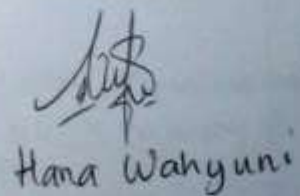 Hana Wahyuni